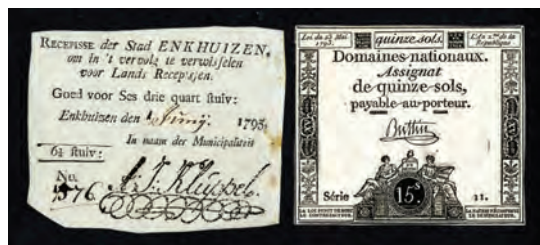 RECEPISSE der Stad ENKHUIZEN,
om in 't vervolg te verwisselen
voor Lands Recepisjen.
Goed voor Ses drie quart ſtuiv:
Enkhuizen den 1795.
In naam der Municipaliteit
6¾ ſtuiv:
No.
1376 Kluppel.
Loi du 23 Mai
1793.
quinze sols.
L'An 2.me de la
République
Domaines nationaux.
Assignat
de quinze sols,
payable au porteur.
Buttin
Série 15s 21.
LA LOI PUNIT DE MORT
LE CONTREFACTEUR
LA NATION RÉCOMPENSE
LE DÉNONCIATEUR.